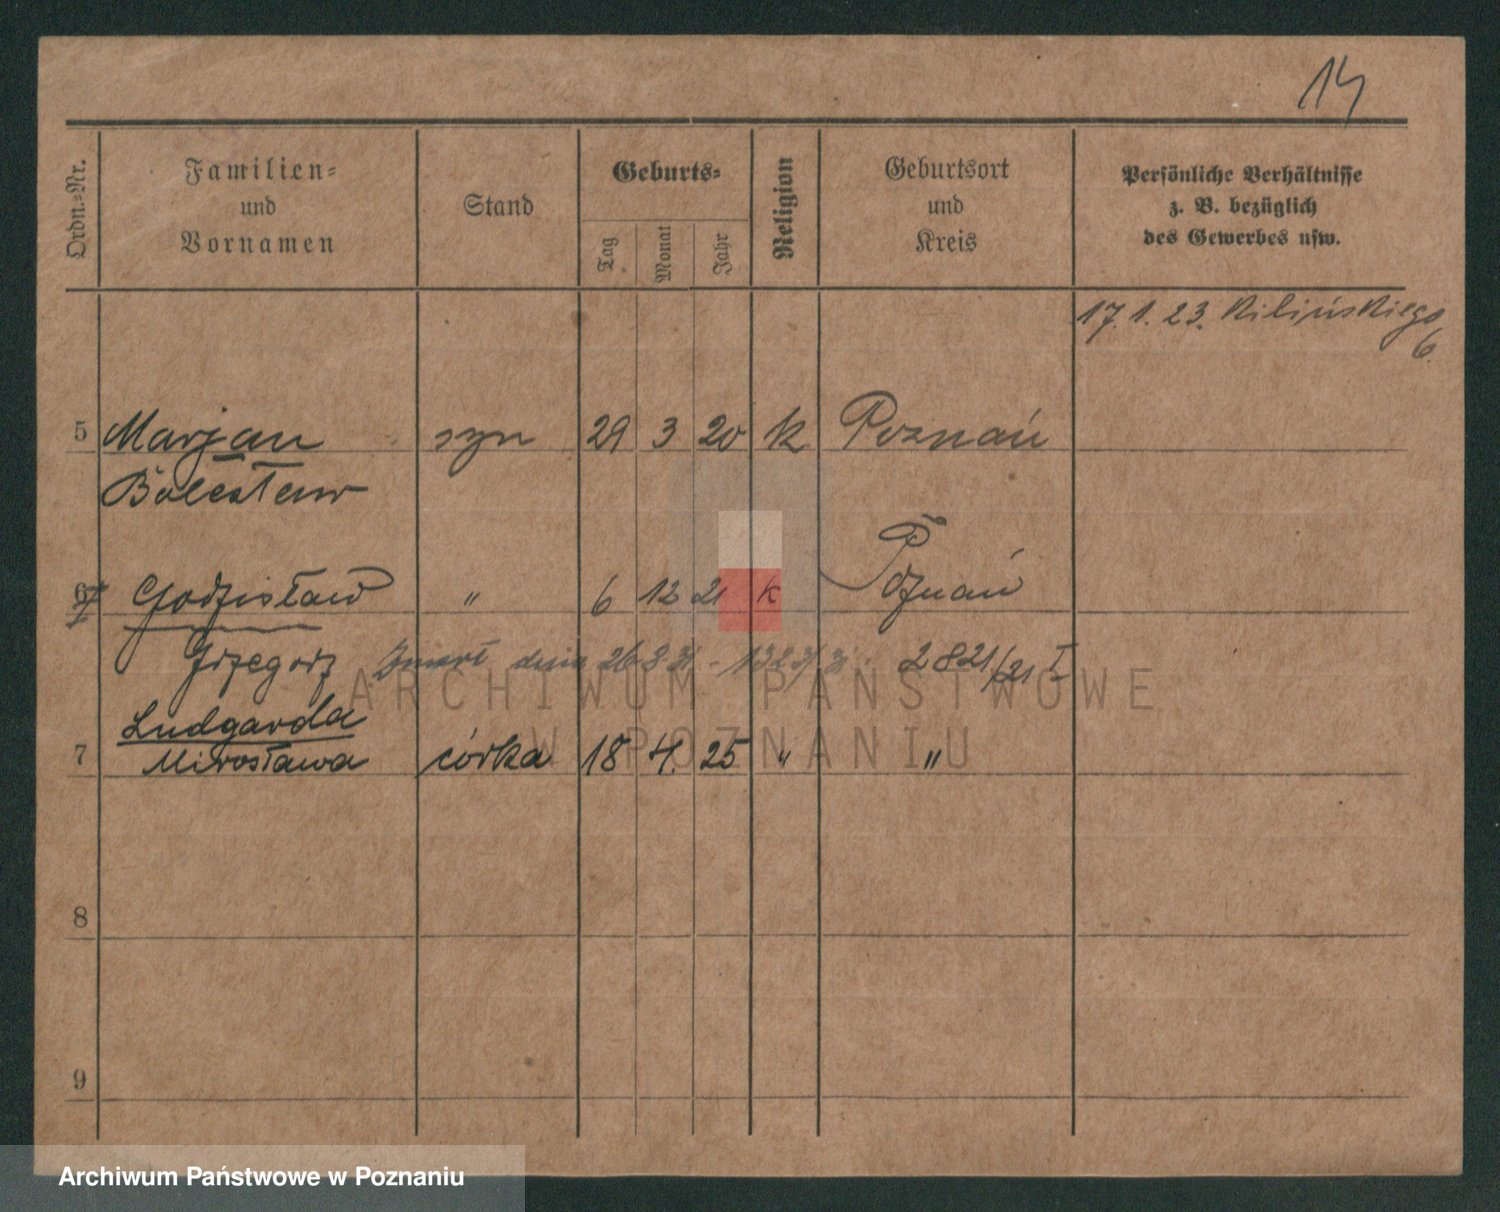 14
Ordn.-Nr.
Familien-
und
Vornamen
Stand
Geburts-
Tag
Monat
Jahr
Religion
Geburtsort
und
Kreis
Persönliche Verhältnisse
z. B. bezüglich
des Gewerbes usw.
17. 1. 23. Kilińskiego
6.
5 Marjan syn 29 3 20 k Poznań
Bolesław
6 Godzisław " 6 12 21 k Poznań
Grzegorz Zmarł dnia 26 8 31 - 1323/31 2821/21 I
Ludgarda
7 Mirosława córka 18 4. 25 " "
8
9
ARCHIWUM PAŃSTWOWE
W POZNANIU
Archiwum Państwowe w Poznaniu